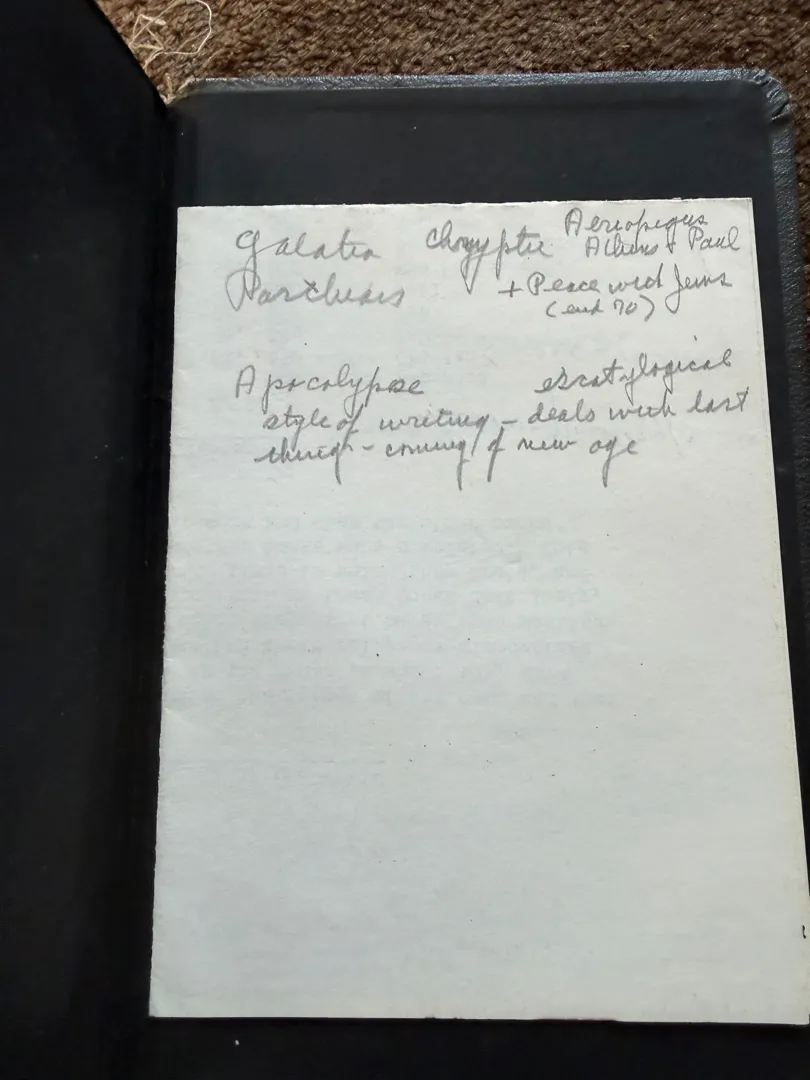 Galatia chryptic Aeriopigus
Athens + Paul
Parthians + Peace with Jews
(end 70)
Apocalypse escatylogical
style of writing - deals with last
things - coming of new age